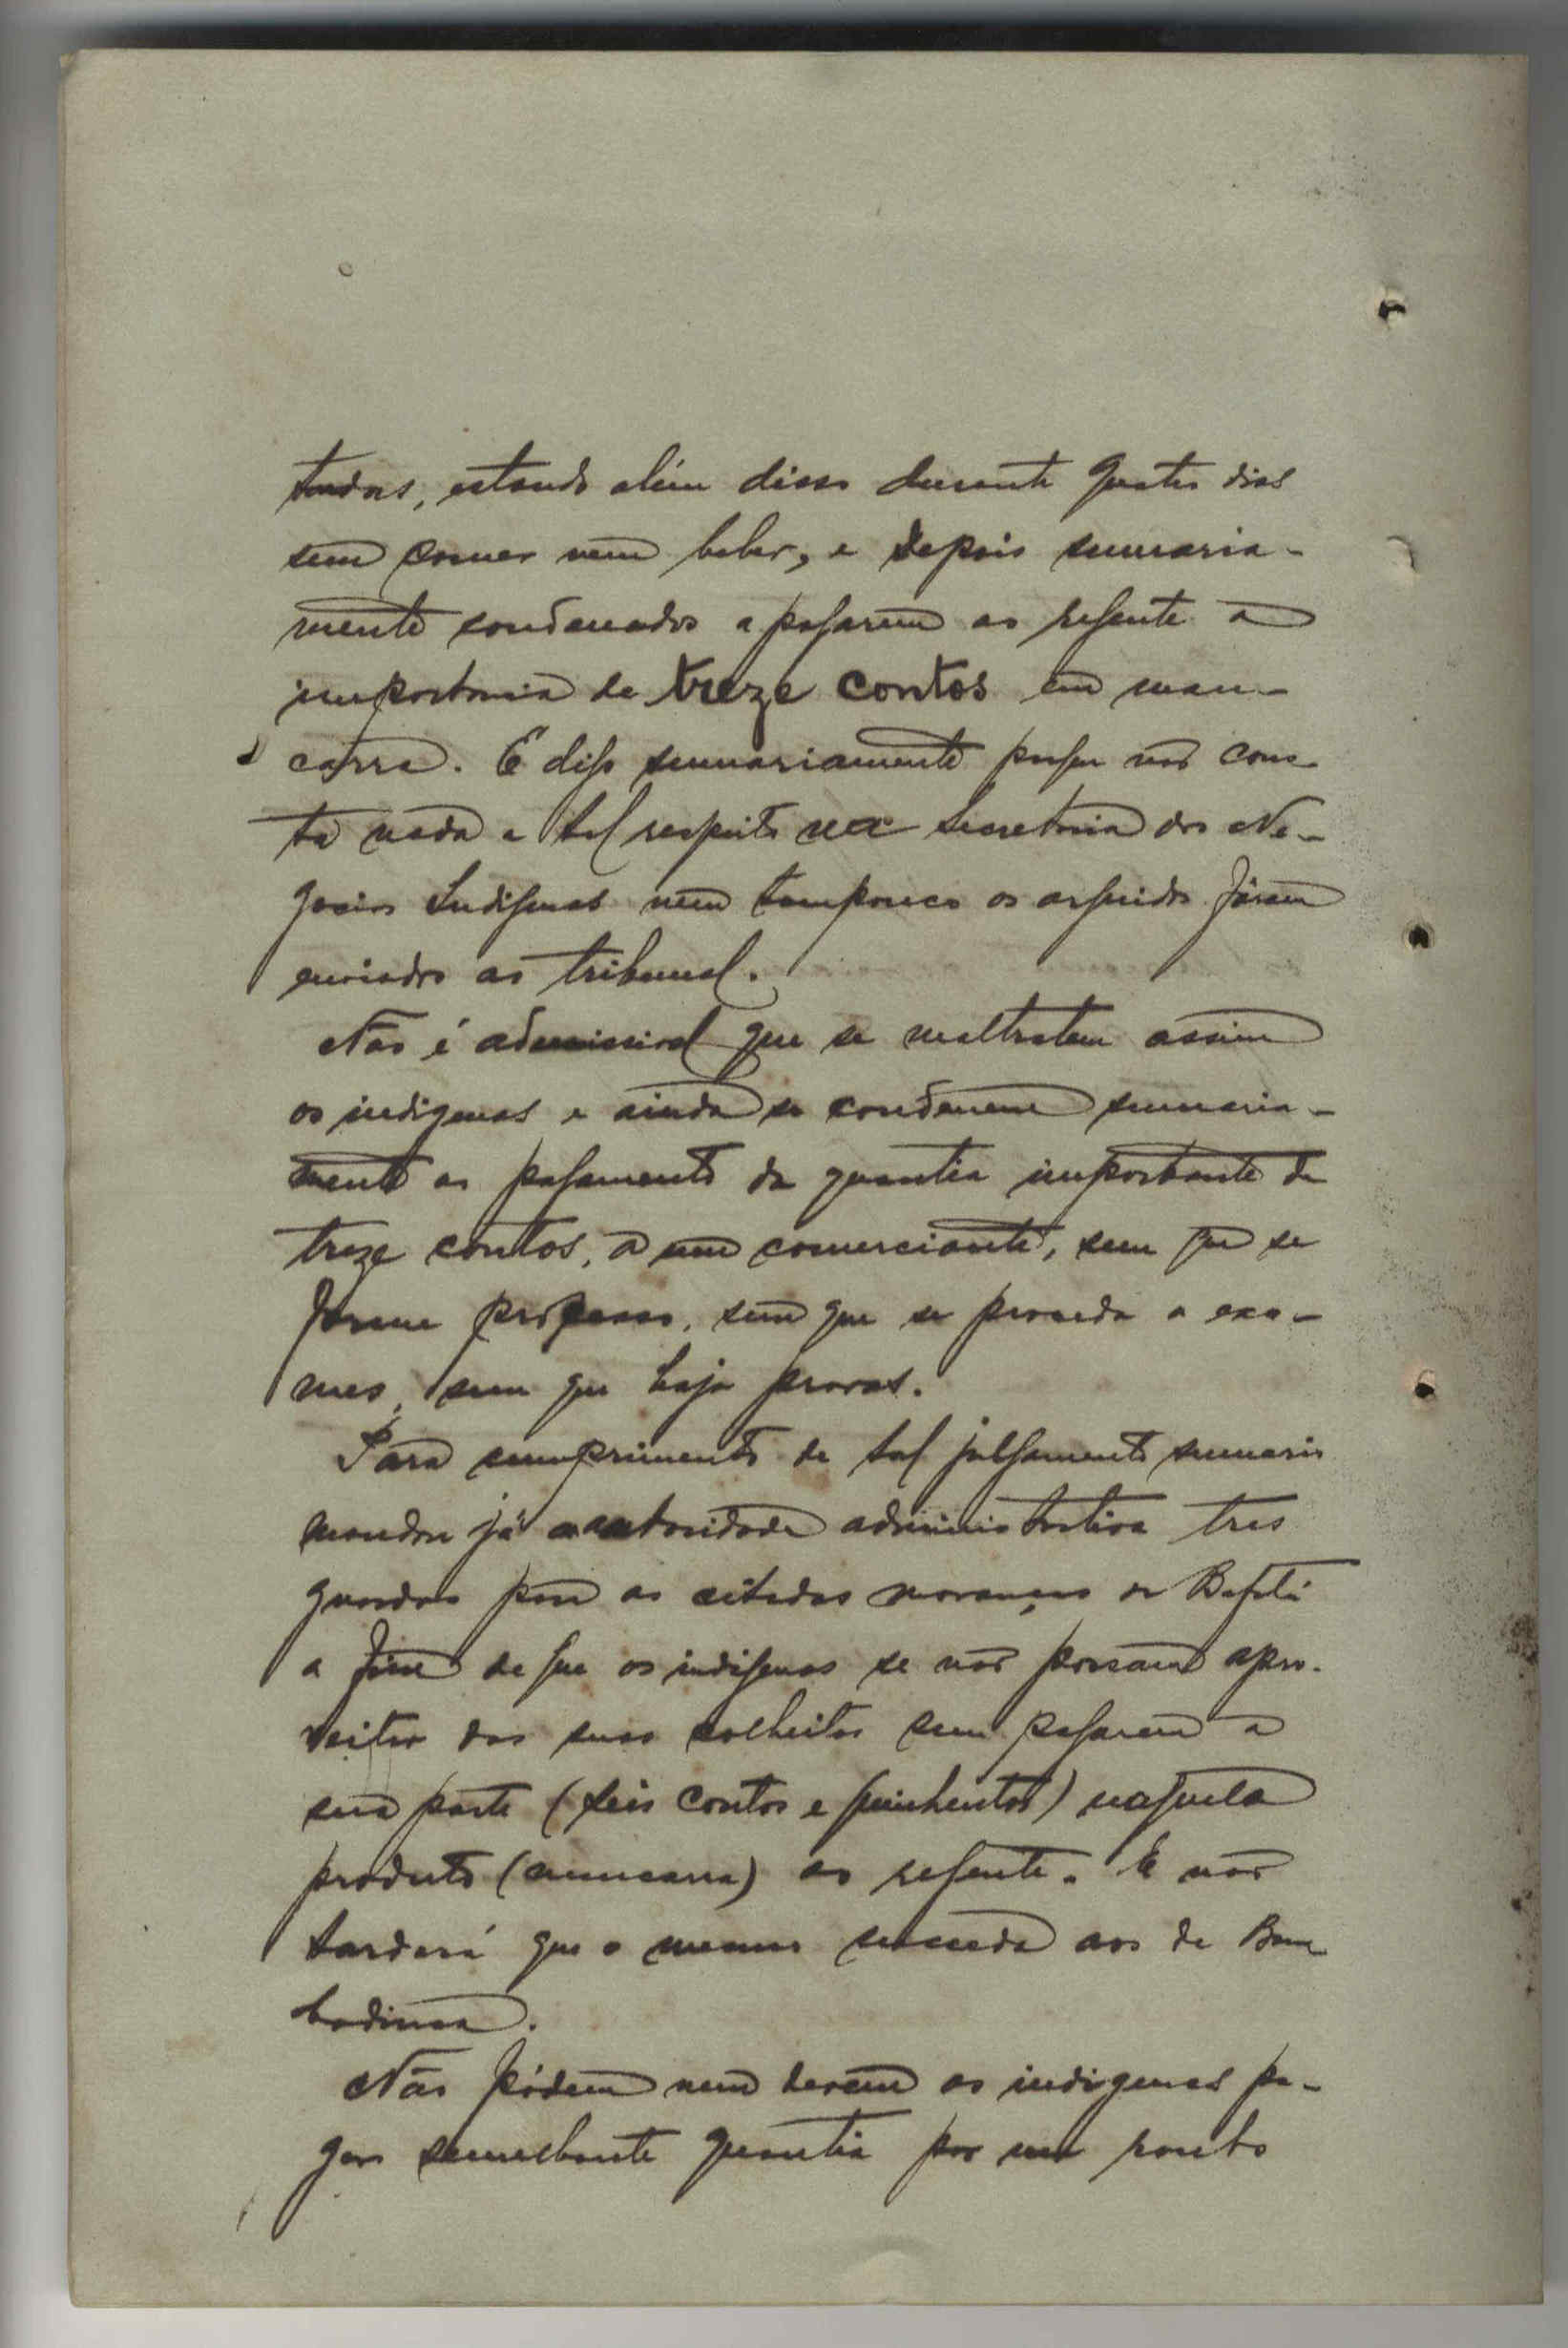 tados, estando além disso durante quatro dias
sem comer nem beber, e depois sumaria-
mente condenados a pagarem ao regente a
importancia de treze contos em man-
carra. E digo sumariamente porque não cons-
ta nada a tal respeito na Secretaria dos Ne-
gocios Indigenas nem tampouco os arguidos fôram
enviados ao tribunal.
Não é admissivel que se maltratem assim
os indigenas e ainda se condenem sumaria-
mente ao pagamento da quantia importante de
treze contos, a um comerciante, sem que se
forme processo, sem que se proceda a exa-
mes, sem que haja provas.
Para cumprimento de tal julgamento sumario
mandou já a autoridade administrativa tres
guardas para as citadas moranças de
a fim de que os indigenas se não possam apro-
veitar das suas colheitas sem pagarem a
sua parte (seis contos e quinhentos) naquele
produto (mancarra) ao regente. E não
tardará que o mesmo suceda aos de Bam
badinca.
Não pódem nem devem os indigenas pa-
gar semelhante quantia por um roubo